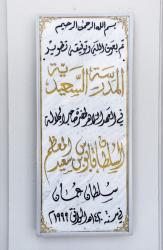 بسم الله الرحمن الرحيم
تم بعون الله وتوفيقه تطوير
المدرسة السعيدية
في العهد الزاهر لحضرة صاحب الجلالة
السلطان قابوس بن سعيد المعظم
سلطان عمان
في سنة الموافق ١٩٩٩م